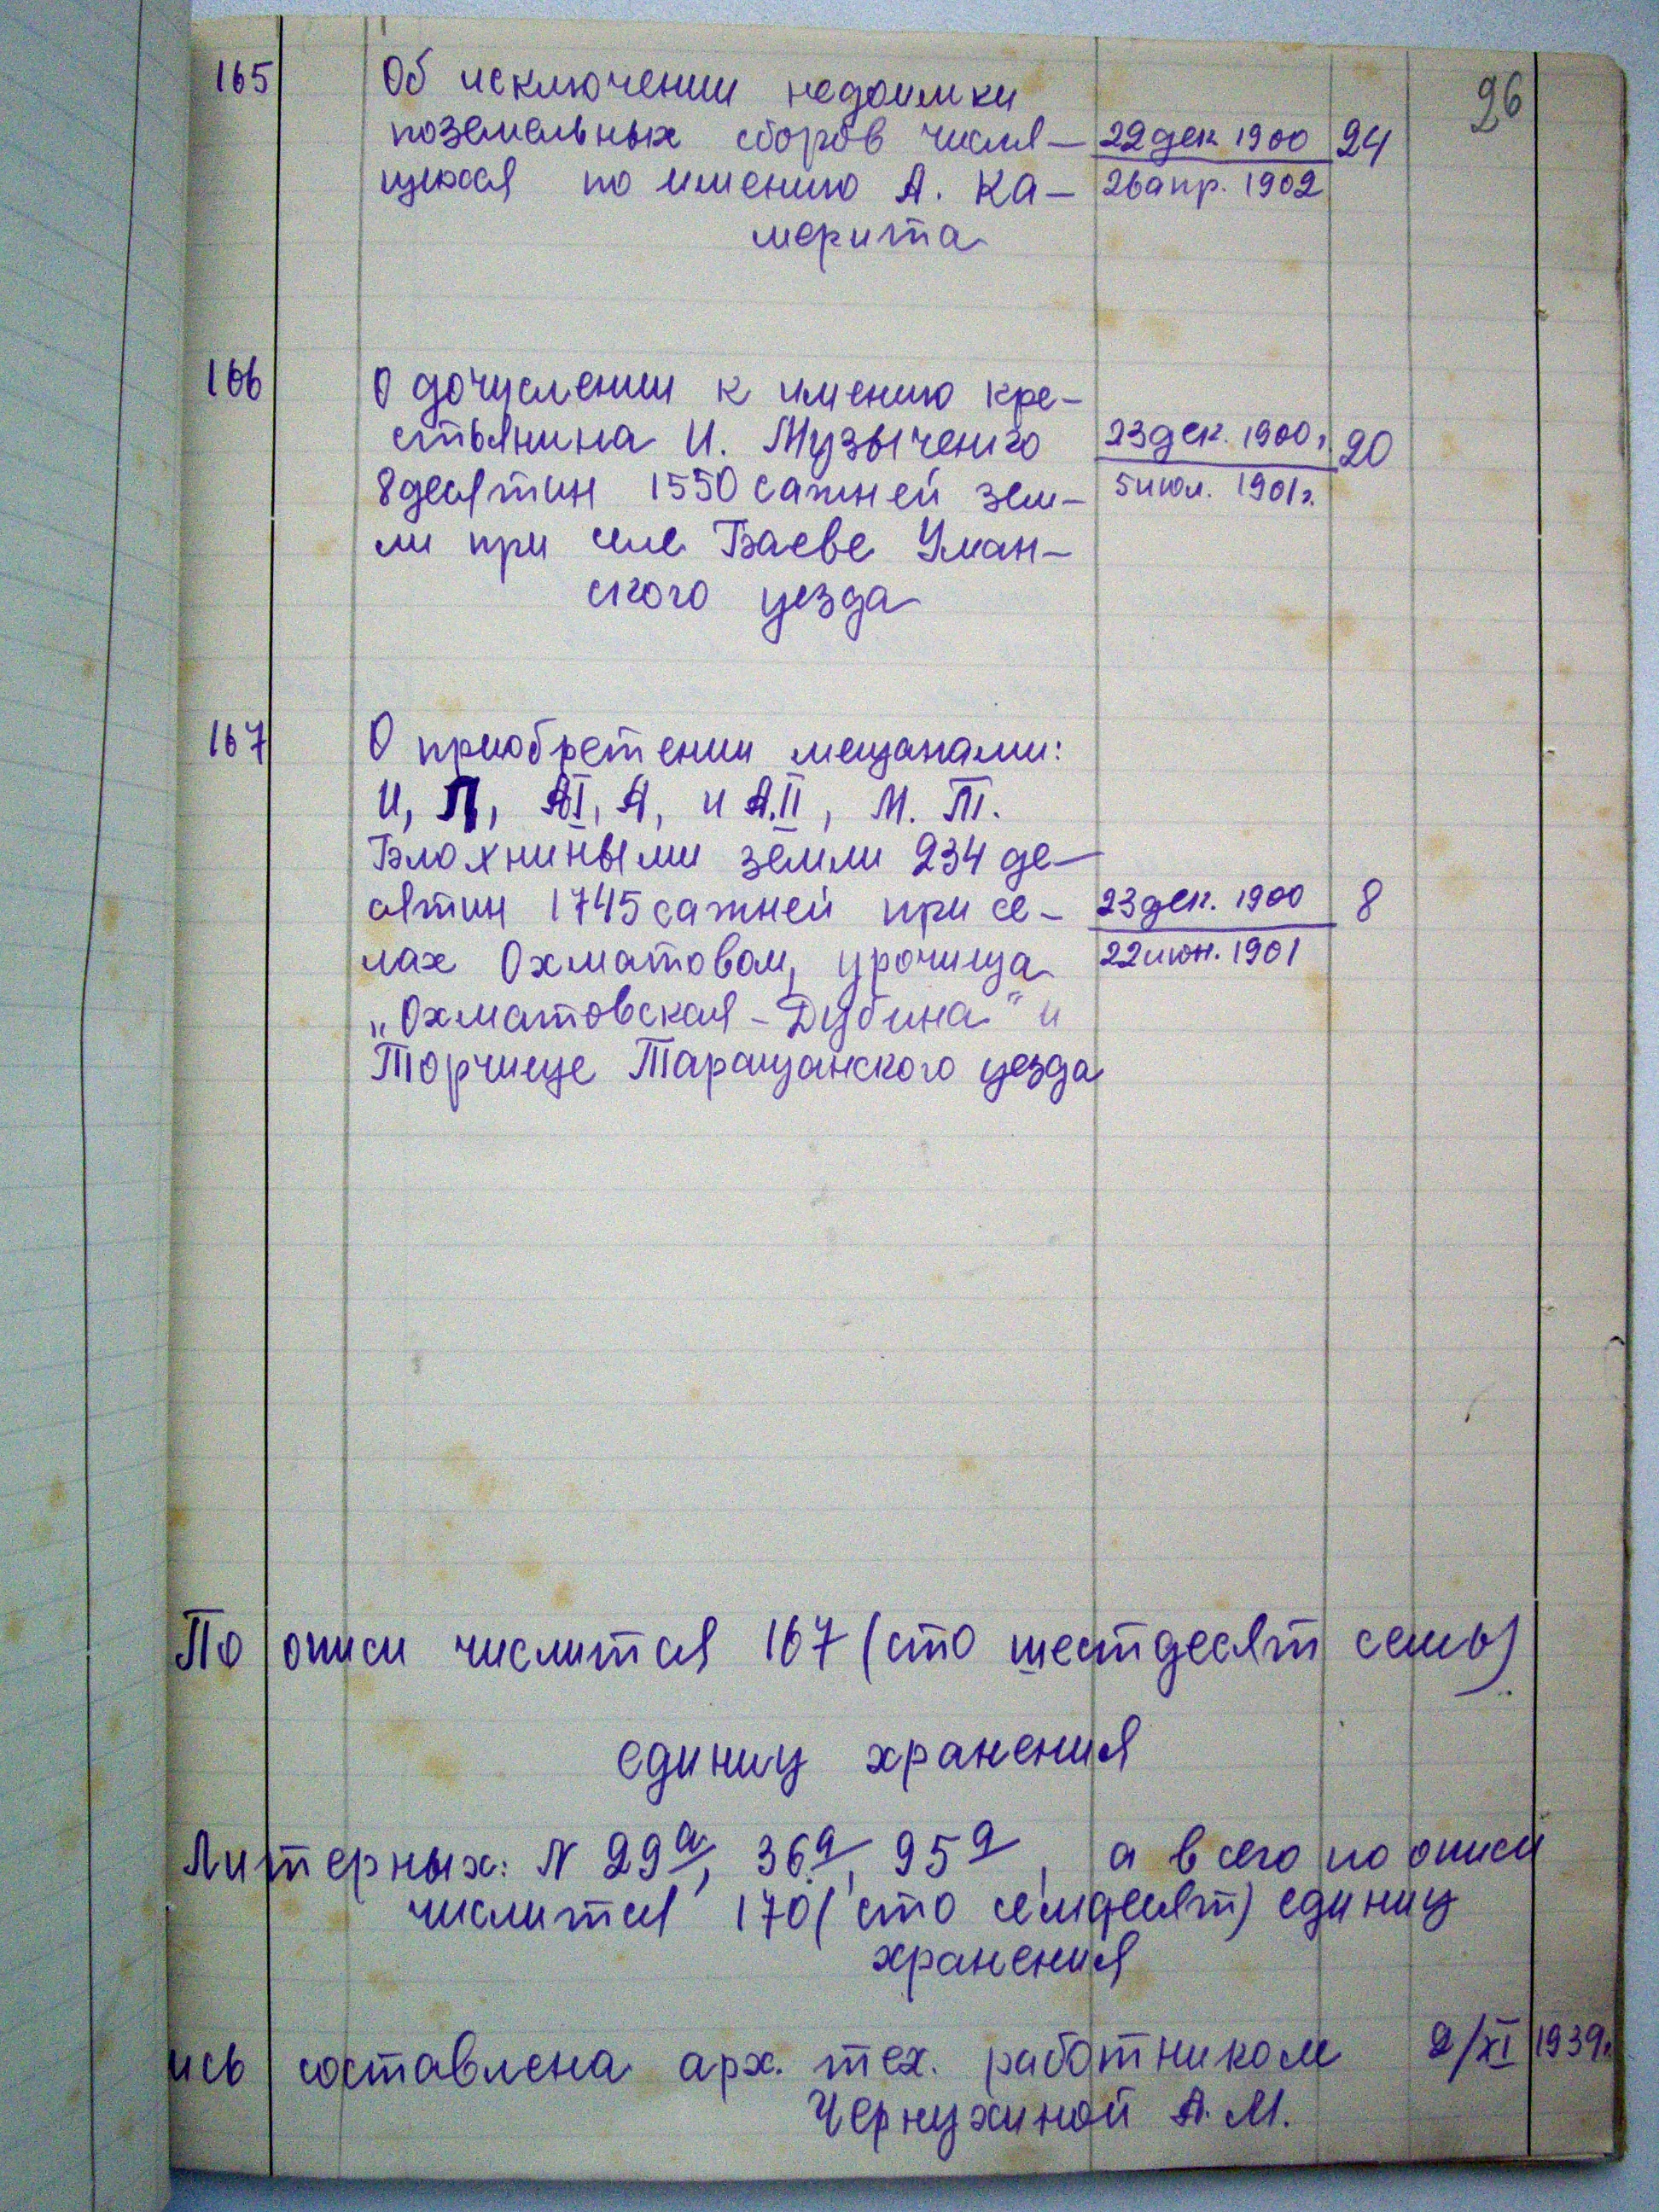 26
165 Об исключении недоимки
поземельных сборов числя- 22 дек 1900 24
щихся по имению А. Ка- 26 апр. 1902
мерита
166 О дочислении к имению кре-
стьянина И. Музыченко 23 дек. 1900 г. 20
8 десятин 1550 сажней зем- 5 июл. 1901 г.
ли при селе Баеве Уман-
ского уезда
167 О приобретении мещанами:
И, П, АI, А, и А.II, М. Т.
Блохниными земли 234 де-
сятин 1745 сажней при се- 23 дек. 1900 8
лах Охматовом, урочища 22 июн. 1901
„Охматовская-Дубина" и
Торчице Таращанского уезда
По описи числится 167 (сто шестдесят семь)
единиц хранения
Литерных: N 29а, 36а, 95а, а всего по описи
числится 170 (сто семдесят) единиц
хранения
ись составлена арх. тех. работником 2/XI 1939г.
Чернухиной А. М.